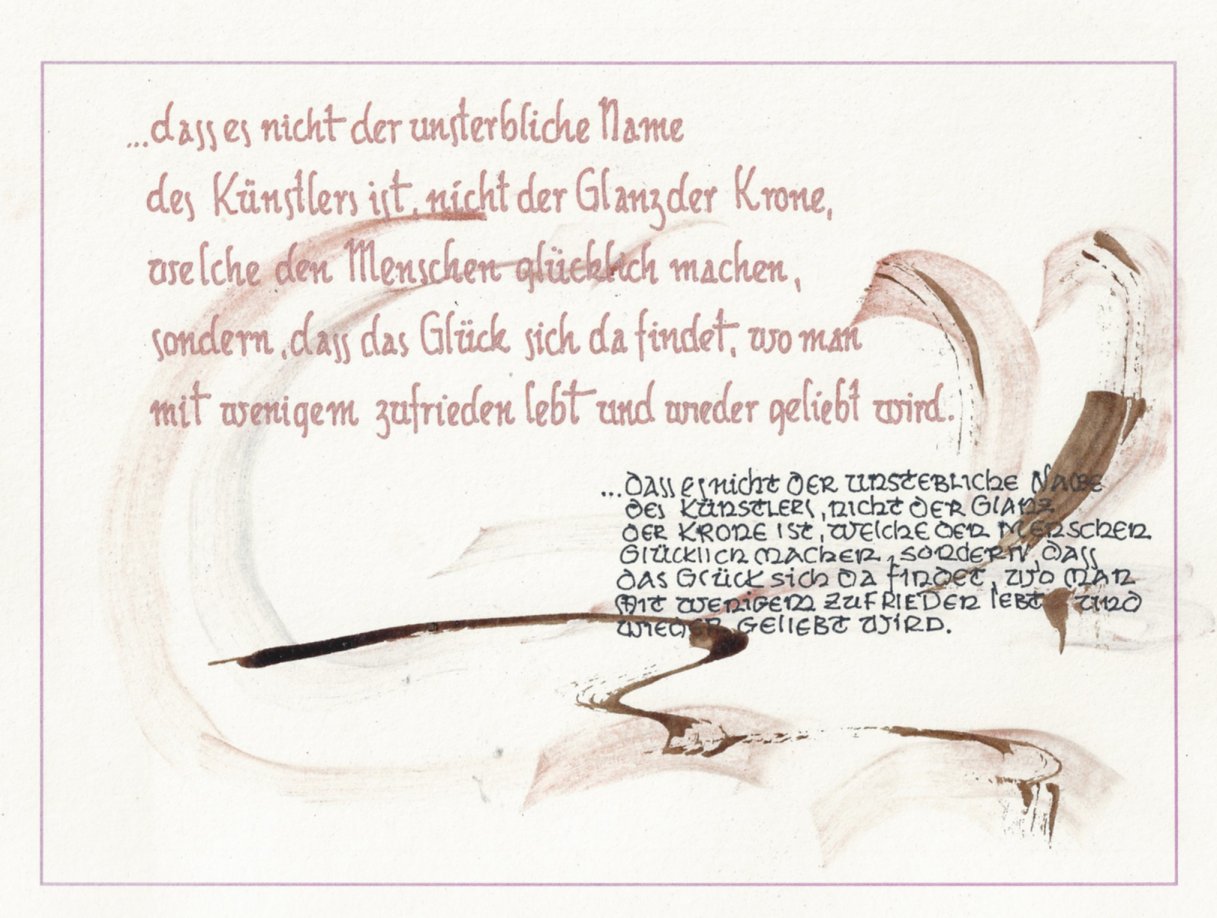 ...dass es nicht der unsterbliche Name
des Künstlers ist, nicht der Glanz der Krone,
welche den Menschen glücklich machen,
sondern, dass das Glück sich da findet, wo man
mit wenigem zufrieden lebt und wieder geliebt wird.
...DASS es nicht DER UNSTEBLICHE NAME
DES KÜNSTLERS, NICHT DER GLANZ
DER KRONE IST, WELCHE DEN MENSCHEN
GLÜCKLICH MACHEN, SONDERN, DASS
DAS GLÜCK SICH DA FINDET, WO MAN
MIT WENIGEM ZUFRIEDEN LEBT UND
WIEDER GELIEBT WIRD.